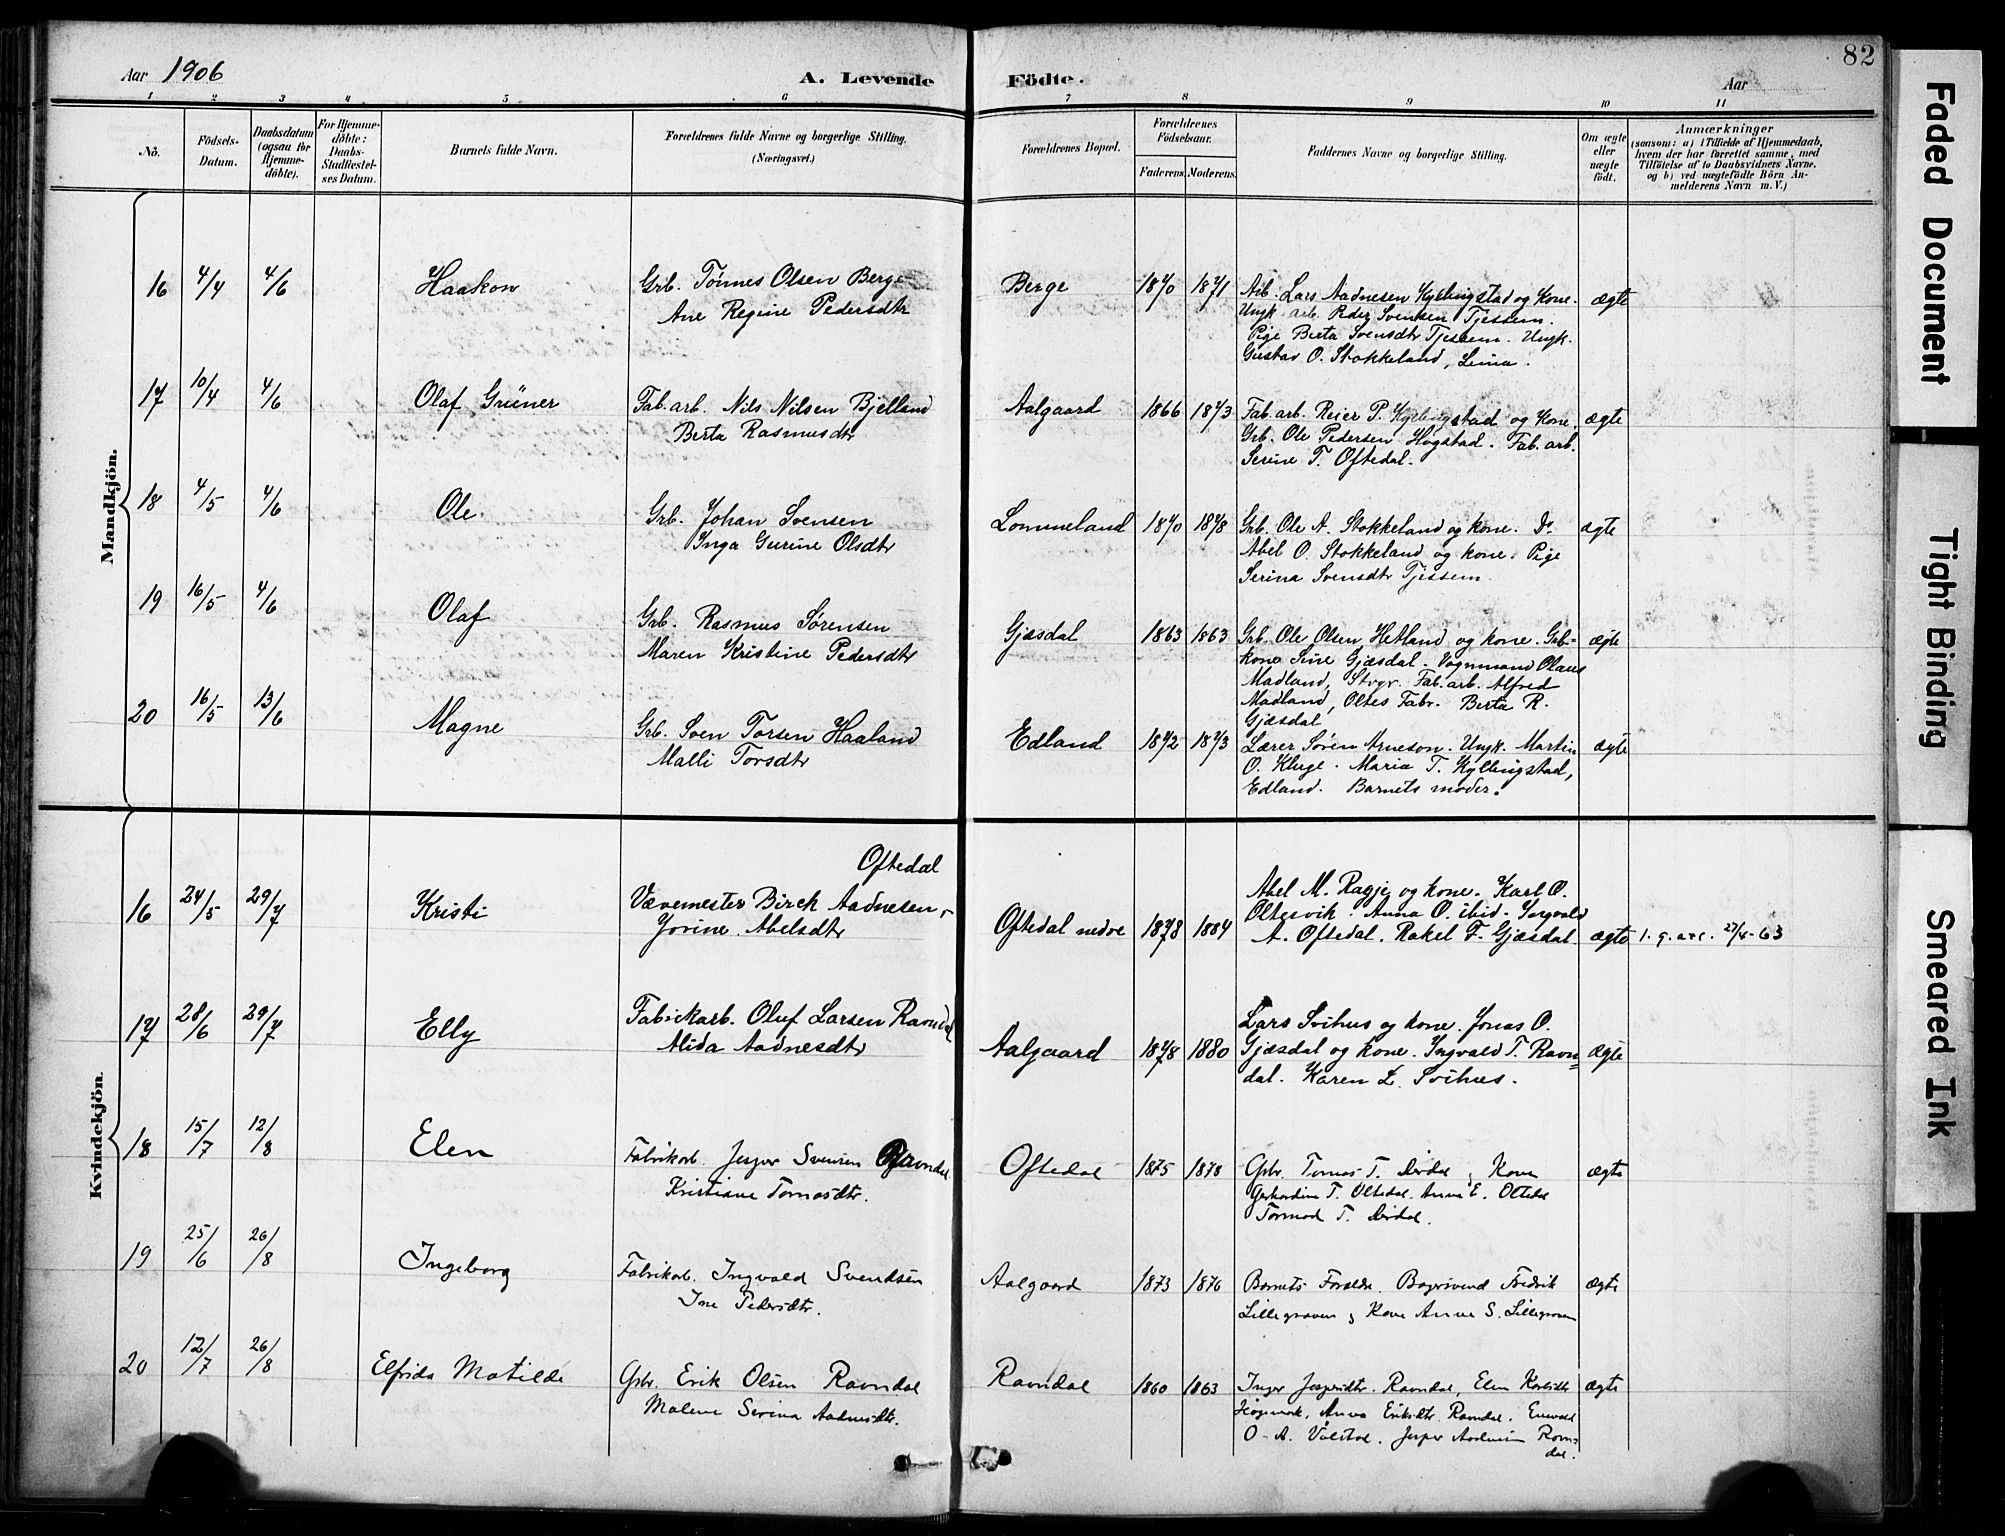 82
Aar 1906
A. Levende Födte.
Aar
1 2 3 4 5 6 7 8 9 10 11
Nô.
Födsels-Datum.
Daabsdatum (ogsaa for Hjemme-döbte).
For Hjemme-döbte: Daabs-Stadfæstel-ses Datum.
Barnets fulde Navn.
Forældrenes fulde Navne og borgerlige Stilling. (Næringsvei.)
Forældrenes Bopæl.
Forældrenes Födselsaar.
Faderens. Moderens.
Faddernes Navne og borgerlige Stilling.
Om ægte eller uægte födt.
Anmærkninger
(saasom: a) i Tilfælde af Hjemmedaab, hvem der har forrettet samme, med Tilföielse af to Daabsvidners Navne. og b) ved uægtefödte Börn Anmelderens Navn m. V.)
Mandkjön.
16 4/4 4/6 Haakon Grb. Tönnes Olsen Berge Berge 1870 1871 Arb. Lars Aadnesen Kyllingstad og Kone. ægte
Ane Regine Pedersdtr Ungk. arb. Peder Svensen Tjessem.
Pige Berta Svensdtr Tjessem. Ungk.
Gustav O. Stokkeland, Lima.
17 10/4 4/6 Olaf Grüner Fab. arb. Nils Nilsen Bjelland Aalgaard 1866 1873 Fab. arb. Reier P. Kyllingstad og Kone. ægte
Berta Rasmusdtr Grb. Ole Pedersen Hogstad. Fab. arb.
Serine T. Oftedal.
18 4/5 4/6 Ole. Grb. Johan Svensen Lommeland 1870 1878 Grb. Ole A. Stokkeland og kone. Do ægte
Inga Gurine Olsdtr Abel O. Stokkeland og kone. Pige
Serina Svensdtr Tjessem.
19 16/5 4/6 Olaf Grb. Rasmus Sørensen Gjæsdal 1863 1863 Grb. Ole Olsen Hetland og kone. Grb- ægte
Maren Kristine Pedersdtr kone Sine Gjæsdal. Vognmand Olaus
Madland, Stvgr. Fab. arb. Alfred
Madland, Oltes Fabr. Berta R.
Gjæsdal
20 16/5 13/6 Magne Grb. Sven Torsen Haaland Edland 1872 1873 Lærer Søren Arneson. Ungk. Martin ægte
Malli Torsdtr O. Kluge. Maria T. Kyllingstad,
Edland. Barnets moder.
Kvindekjön.
Oftedal
16 24/5 29/7 Kristi Vævemester Birch Aadnesen Oftedal nedre 1878 1884 Abel M. Ragje og kone. Karl O.
Jorine Abelsdtr Oltesvik. Anna O. ibid. Ingvald
A. Oftedal. Rakel F. Gjæsdal ægte 1. g. att. 27/4-63
17 28/6 29/7 Elly Fabrikarb. Oluf Larsen Ravndal Aalgaard 1878 1880 Lars Svihus og kone. Jonas O.
Alida Aadnesdtr Gjæsdal og kone. Ingvald T. Ravn= ægte
dal. Karen L. Svihus.
18 15/7 12/8 Elen Fabrikarb. Jesper Svensen Ravndal Oftedal 1875 1878 Grbr. Tomas T. Dirdal & Kone ægte
Kristiane Tomasdtr. Gerhardine T. Oltedal. Anna E. Oltedal
Tormod T. Dirdal.
19 25/6 26/8 Ingeborg Fabrikarb. Ingvald Svendsen Aalgaard 1873 1876 Barnets Forældre. Bagersvend Fredrik ægte
Ine Pedersdtr. Lillegraven & Kone Anne S. Lillegraven
20 12/7 26/8 Elfrida Matilde Grbr. Erik Olsen Ravndal Ravndal 1860 1863 Inger Jespersdtr. Ravndal, Elen ægte
Malene Serina Aadnesdtr. Anna Eriksdtr Ravndal.
O. A. Jesper Ravn=
dal.
Faded Document
Tight Binding
Smeared Ink